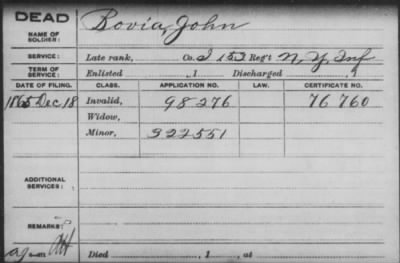 DEAD
NAME OF SOLDIER: Bovia, John
SERVICE: Late rank, Co. I 153 Reg't N.Y. Inf
TERM OF SERVICE: Enlisted , 1 Discharged , 1
DATE OF FILING. CLASS. APPLICATION NO. LAW. CERTIFICATE NO.
1865 Dec. 18 Invalid, 98 276 76 760
Widow,
Minor, 322551
ADDITIONAL SERVICES:
REMARKS:
Died , 1 , at